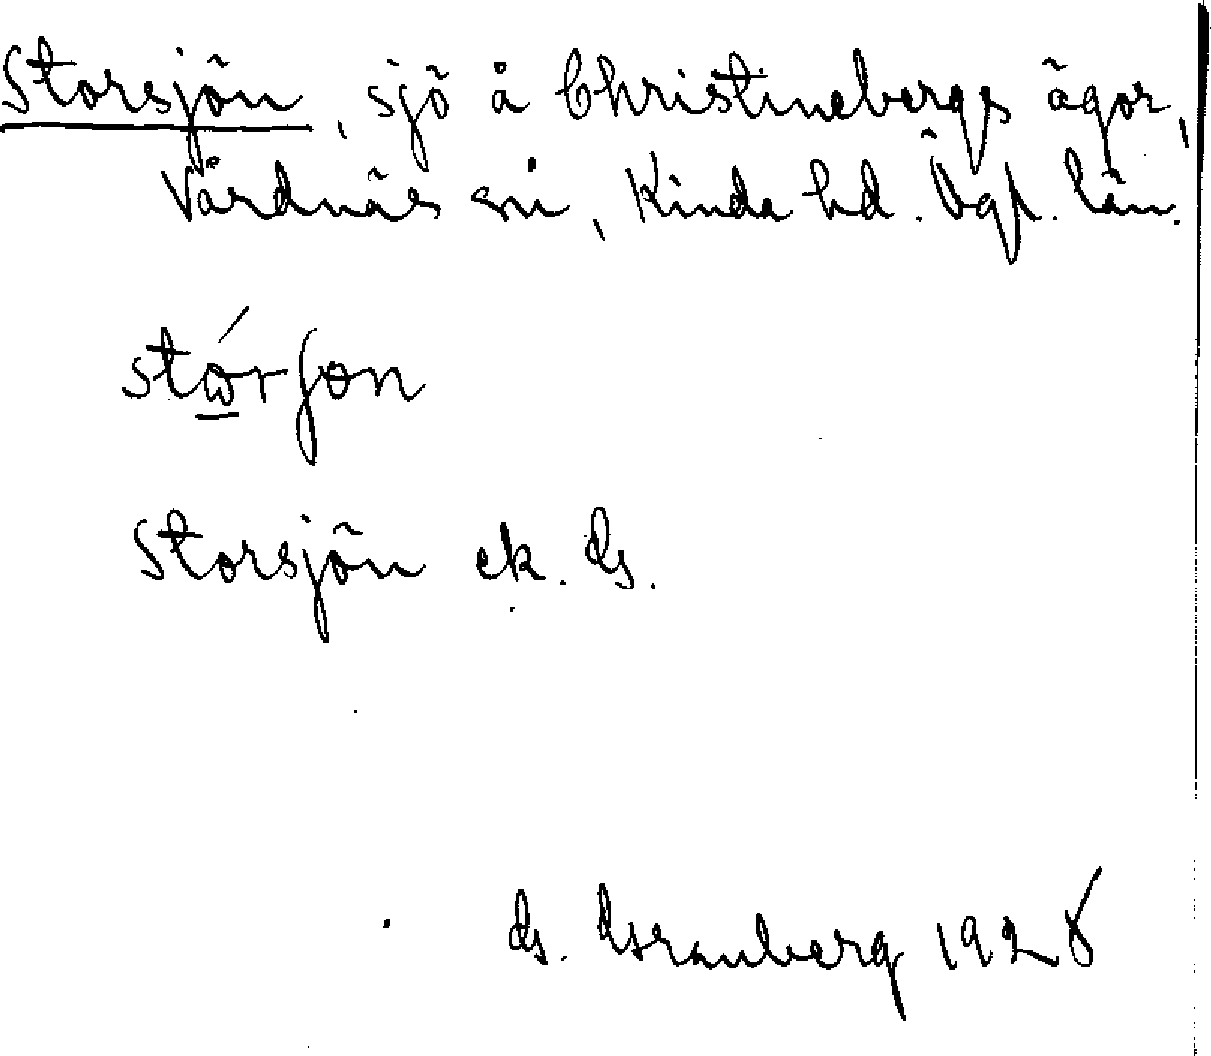 Storsjön, sjö å Christinebergs ägor,
Vårdnäs sn, Kinda hd. Ögl. län.
Storsjön ek. G.
G. Granberg 1928